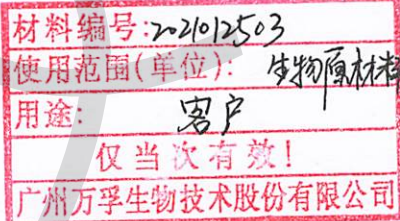 材料编号:2021012503
使用范围(单位): 生物原材料
用途: 客户
仅当次有效!
广州万孚生物技术股份有限公司